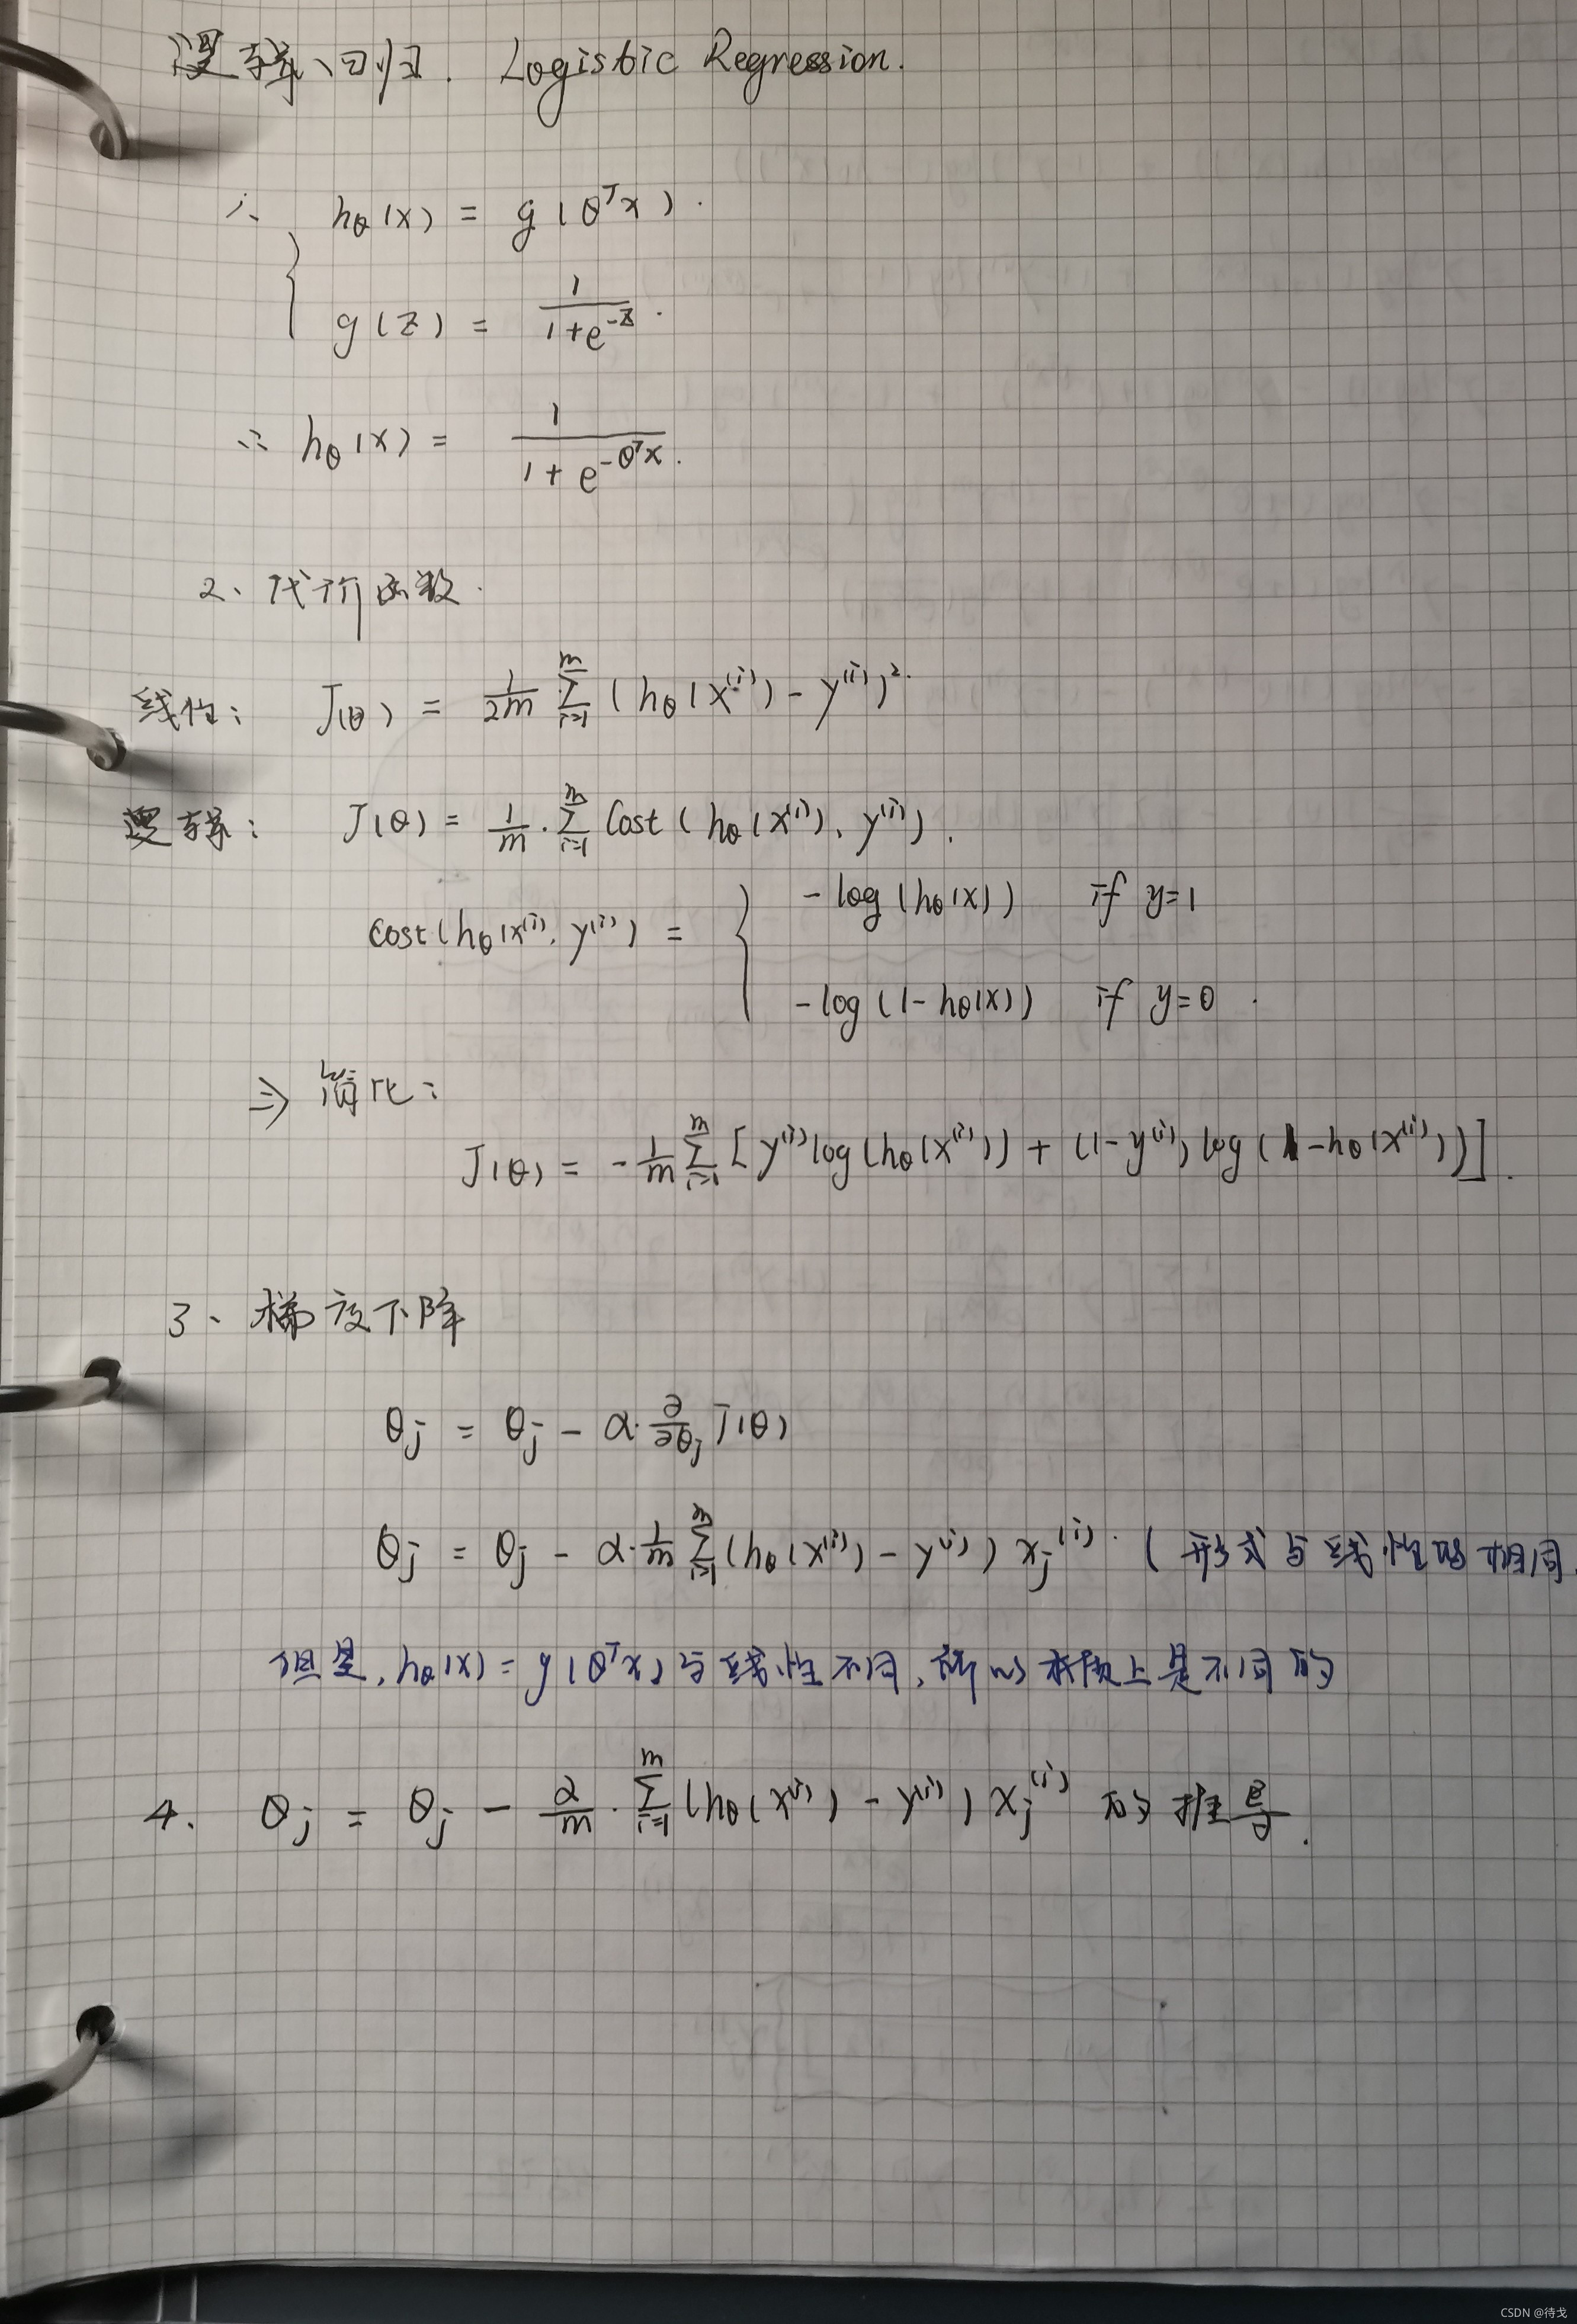 逻辑回归. Logistic Regression.
1、 hθ(x) = g(θᵀx).
g(z) = 1/(1+e^{-z}).
∴ hθ(x) = 1/(1+e^{-θᵀx}).
2、代价函数.
线性: J(θ) = 1/2m Σ_{i=1}^{m} (hθ(x^{(i)}) - y^{(i)})².
逻辑: J(θ) = 1/m · Σ_{i=1}^{m} Cost(hθ(x^{(i)}), y^{(i)}).
Cost(hθ(x^{(i)}, y^{(i)}) = { -log(hθ(x)) if y=1
-log(1-hθ(x)) if y=0.
⇒ 简化:
J(θ) = -1/m Σ_{i=1}^{m} [y^{(i)}log(hθ(x^{(i)})) + (1-y^{(i)})log(1-hθ(x^{(i)}))].
3、梯度下降
θj = θj - α·∂/∂θj J(θ)
θj = θj - α·1/m Σ_{i=1}^{m} (hθ(x^{(i)}) - y^{(i)}) xj^{(i)}. (形式与线性的相同.
但是, hθ(x) = g(θᵀx)与线性不同, 所以本质上是不同的
4. θj = θj - α/m · Σ_{i=1}^{m} (hθ(x^{(i)}) - y^{(i)}) xj^{(i)} 的推导.
CSDN @待戈